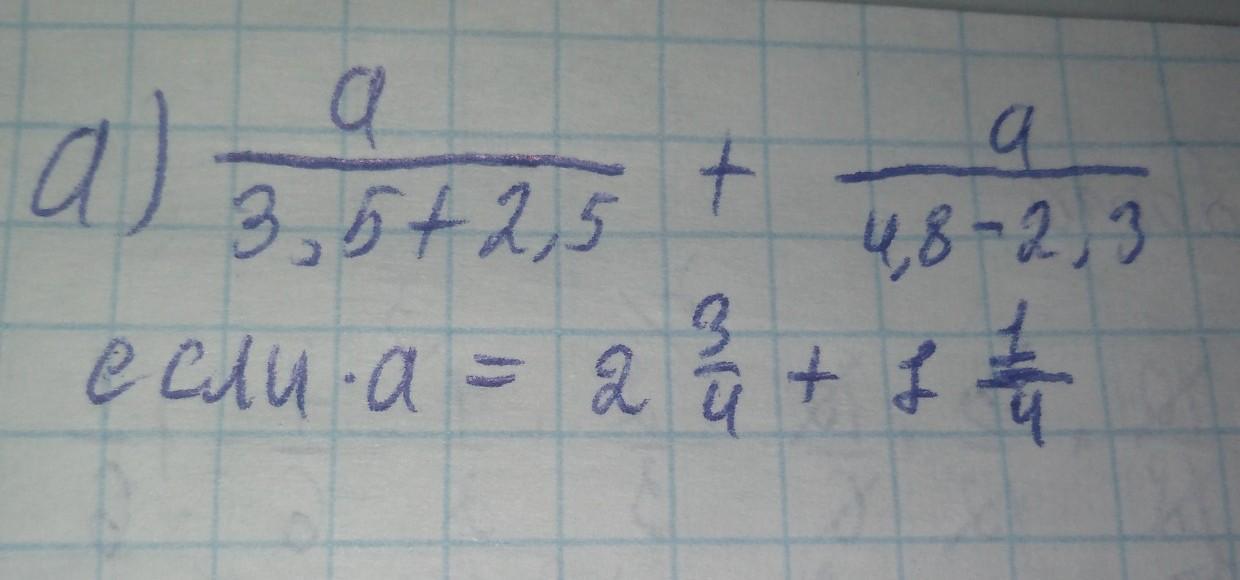 а) a/(3,5+2,5) + a/(4,8-2,3)
если · a = 2 3/4 + 1 1/4